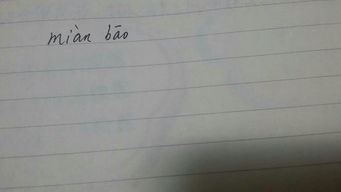 miàn bāo